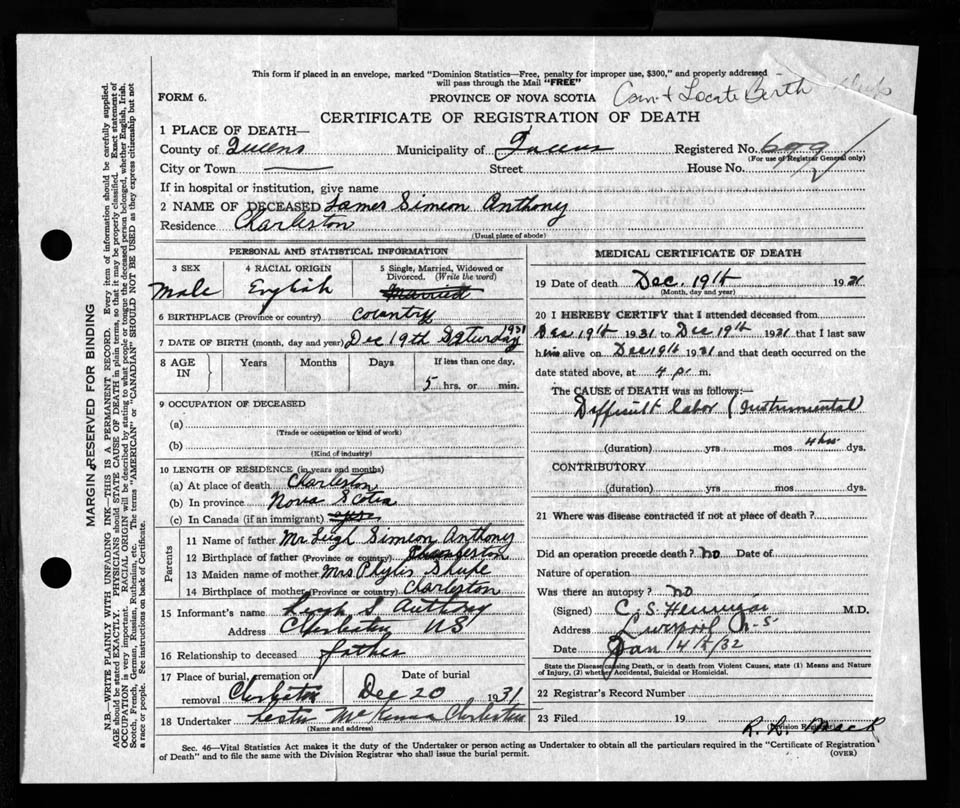 This form if placed in an envelope, marked "Dominion Statistics—Free, penalty for improper use, $300," and properly addressed
will pass through the Mail "FREE"
FORM 6.
PROVINCE OF NOVA SCOTIA
Locate Birth
CERTIFICATE OF REGISTRATION OF DEATH
1 PLACE OF DEATH—
County of Queens Municipality of Queens Registered No.
(For use of Registrar General only)
City or Town — Street House No.
If in hospital or institution, give name
2 NAME OF DECEASED James Simeon Anthony
Residence Charleston
(Usual place of abode)
PERSONAL AND STATISTICAL INFORMATION
3 SEX 4 RACIAL ORIGIN 5 Single, Married, Widowed or
Divorced. (Write the word)
Male English Married
6 BIRTHPLACE (Province or country) Country
7 DATE OF BIRTH (month, day and year) Dec 19th Saturday 1931
8 AGE IN Years Months Days If less than one day,
5 hrs. or min.
9 OCCUPATION OF DECEASED
(a)
(Trade or occupation or kind of work)
(b)
(Kind of industry)
10 LENGTH OF RESIDENCE (in years and months)
(a) At place of death Charleston
(b) In province Nova Scotia
(c) In Canada (if an immigrant)
Parents
11 Name of father Mr Leigh Simeon Anthony
12 Birthplace of father (Province or country) Charleston
13 Maiden name of mother Mrs Phylis Shupe
14 Birthplace of mother (Province or country) Charleston
15 Informant's name Leigh S Anthony
Address Charleston NS
16 Relationship to deceased father
17 Place of burial, cremation or
removal Charleston
Date of burial
Dec 20 1931
18 Undertaker McKenna Charleston
(Name and address)
MEDICAL CERTIFICATE OF DEATH
19 Date of death Dec. 19th 1931
(Month, day and year)
20 I HEREBY CERTIFY that I attended deceased from
Dec 19th 1931 to Dec 19th 1931 that I last saw
him alive on Dec 19th 1931 and that death occurred on the
date stated above, at 4 p. m.
The CAUSE OF DEATH was as follows:—
Difficult labor (Instrumental)
(duration) yrs. mos. 4 hrs dys.
CONTRIBUTORY
(duration) yrs. mos. dys.
21 Where was disease contracted if not at place of death?
Did an operation precede death? no Date of
Nature of operation
Was there an autopsy? no
(Signed) C. S. Hennigar M.D.
Address Liverpool N-S
Date Jan 14th/32
State the Disease causing Death, or in death from Violent Causes, state (1) Means and Nature
of Injury, (2) whether Accidental, Suicidal or Homicidal.
22 Registrar's Record Number
23 Filed 19
Mack
Division Registrar
Sec. 46—Vital Statistics Act makes it the duty of the Undertaker or person acting as Undertaker to obtain all the particulars required in the "Certificate of Registration
of Death" and to file the same with the Division Registrar who shall issue the burial permit.
(OVER)
MARGIN RESERVED FOR BINDING
N.B.—WRITE PLAINLY WITH UNFADING INK—THIS IS A PERMANENT RECORD. Every item of information should be carefully supplied.
AGE should be stated EXACTLY. PHYSICIANS should STATE CAUSE OF DEATH in plain terms, so that it may be properly classified. Exact statement of
OCCUPATION is very important. RACIAL ORIGIN will be described by stating to what people or tongue the deceased person belonged, whether English, Irish,
Scotch, French, German, Russian, Ruthenian, etc. The terms "AMERICAN" or "CANADIAN" SHOULD NOT BE USED as they express citizenship but not
a race or people. See instructions on back of Certificate.